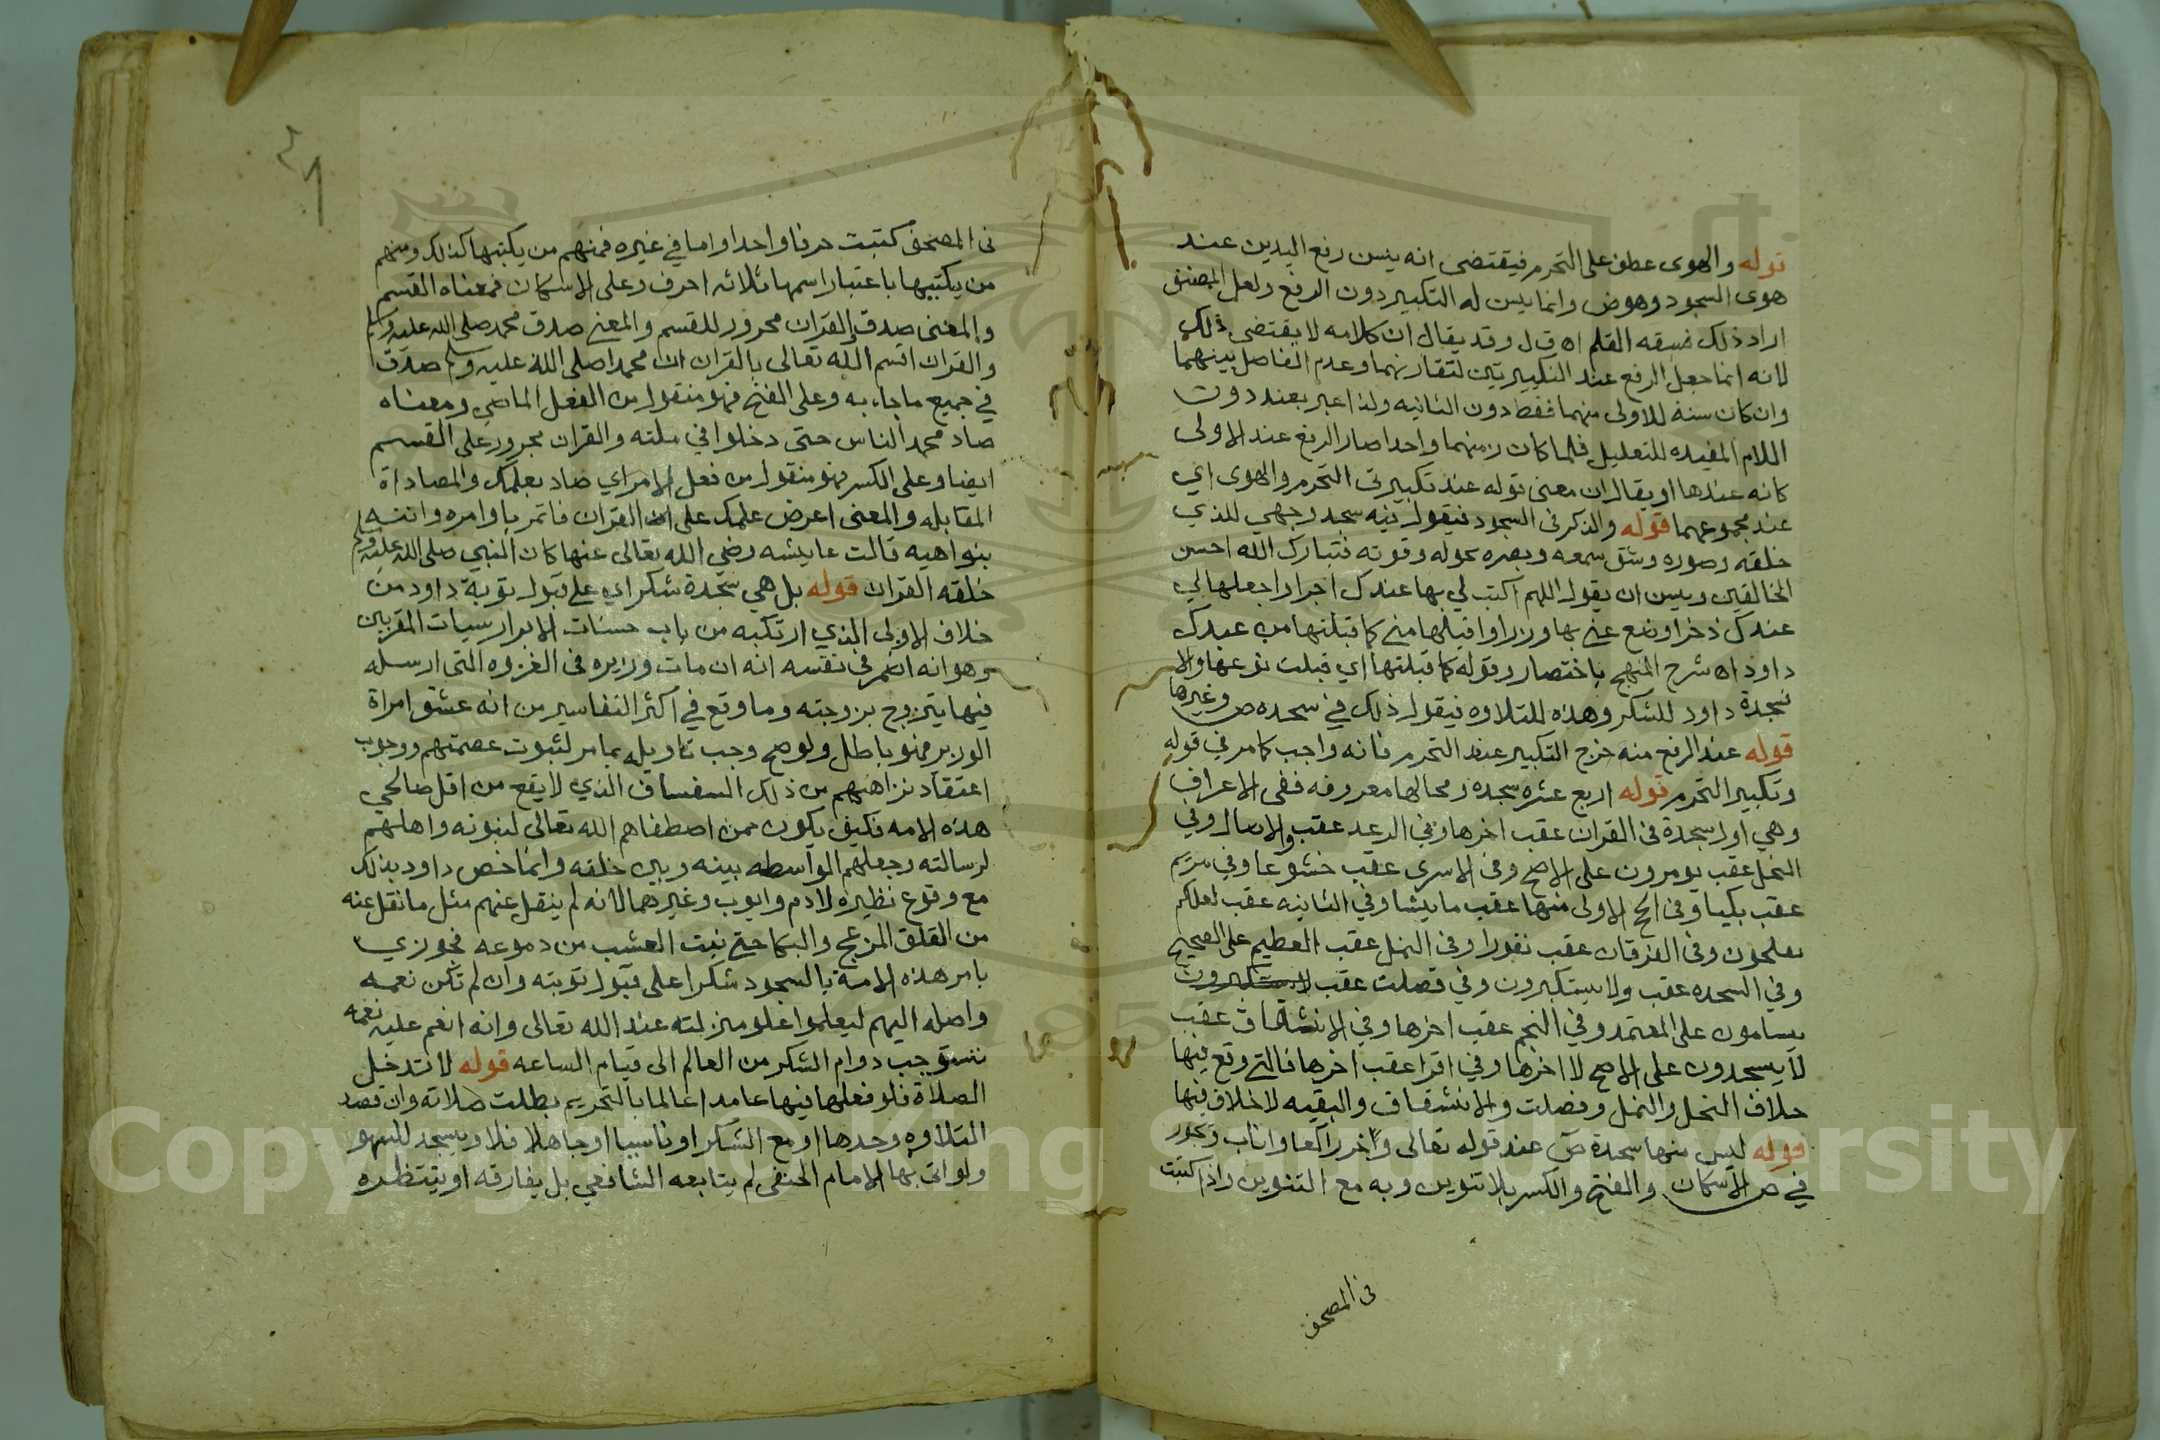 قوله والهوى عطف على التحرم فيقتضى انه يسن رفع اليدين عند
هوى السجود وهوض وانما يسن له التكبير دون الرفع ولعل المصنف
اراد ذلك فسبقه القلم اه ق ل وقد يقال ان كلامه لا يقتضى ذلك
لانه انما جعل الرفع عند التكبيرتين لتقارنهما وعدم الفاصل بينهما
وان كان سنة للاولى منهما فقط دون الثانيه ولذا عبر بعند دون
اللام المفيده للتعليل فلما كان زمنهما واحدا صار الرفع عند الاولى
كانه عندها او يقال ان معنى قوله عند تكبيرتى التحرم والهوى اي
عند مجموعهما قوله والذكر فى السجود فيقول فيه سجد وجهي للذي
خلقه وصوره وشق سمعه وبصره بحوله وقوته فتبارك الله احسن
الخالقين ويسن ان يقول اللهم اكتب لي بها عندك اجرا واجعلها لي
عندك ذخرا وضع عني بها وزرا واقبلها مني كما قبلتها من عبدك
داود اه شرح المنهج باختصار وقوله كما قبلتها اي قبلت نوعها والا
فسجدة داود للشكر وهذه للتلاوه فيقول ذلك في سجده ص وغيرها
قوله عند الرفع منه خرج التكبير عند التحرم فانه واجب كما مر في قوله
وتكبير التحرم قوله اربع عشره سجده ومحالها معروفه ففى الاعراف
وهي اول سجدة فى القران عقب اخرها وفي الرعد عقب والاصال وفي
النحل عقب يومرون على الاصح وفى الاسرى عقب خشوعا وفي مريم
عقب بكيا وفى الحج الاولى منها عقب ما يشا وفي الثانيه عقب لعلكم
تفلحون وفى الفرقان عقب نفورا وفى النمل عقب العظيم على الصحيح
وفي السجده عقب ولا يستكبرون وفي فصلت عقب لا يستكبرون
يسامون على المعتمد وفي النجم عقب اخرها وفي الانشقاق عقب
لا يسجدون على الاصح لا اخرها وفي اقرا عقب اخرها فالتي وقع فيها
خلاف النحل والنمل وفصلت والانشقاق والبقيه لا خلاف فيها
قوله ليس منها سجدة ص عند قوله تعالى وخر راكعا واناب ويجوز
في ص الاسكان والفتح والكسر بلا تنوين وبه مع التنوين واذا كتبت
فى المصحف
فى المصحف كتبت حرفا واحدا واما في غيره فمنهم من يكتبها كذلك ومنهم
من يكتبها باعتبار اسمها ثلاثه احرف وعلى الاسكان فمعناه القسم
والمعنى صدق والقران مجرور للقسم والمعنى صدق محمد صلى الله عليه وسلم
والقران اقسم الله تعالى بالقران ان محمدا صلى الله عليه وسلم صدق
في جميع ما جاء به وعلى الفتح فهو منقول من الفعل الماضي ومعناه
صاد محمد الناس حتى دخلوا في ملته والقران مجرور على القسم
ايضا وعلى الكسر فهو منقول من فعل الامر اي صاد بعلمك والمصاداة
المقابله والمعنى اعرض علمك على القران فاتمر باوامره وانته
بنواهيه قالت عايشه رضي الله تعالى عنها كان النبي صلى الله عليه وسلم
خلقه القران قوله بل هي سجدة شكر اي على قبول توبة داود من
خلاف الاولى الذي ارتكبه من باب حسنات الابرار سيات المقربين
وهو انه اضمر في نفسه انه ان مات وزيره فى الغزوه التى ارسله
فيها يتزوج بزوجته وما وقع في اكثر التفاسير من انه عشق امراة
الوزير فهو باطل ولو صح وجب تاويله بما مر لثبوت عصمتهم ووجوب
اعتقاد نزاهتهم من ذلك السفساف الذي لا يقع من اقل صالحي
هذه الامه فكيف يكون ممن اصطفاهم الله تعالى لنبوته واهلهم
لرسالته وجعلهم الواسطه بينه وبين خلقه وانما خص داود بذلك
مع وقوع نظيره لادم وايوب وغيرهما لانه لم ينقل عنهم مثل ما نقل عنه
من القلق المزعج والبكا حتى نبت العشب من دموعه فجوزي
بامر هذه الامة بالسجود شكرا على قبول توبته وان لم تكن نعمه
واصله اليهم ليعلموا علو منزلته عند الله تعالى وانه انعم عليه نعمه
تستوجب دوام الشكر من العالم الى قيام الساعه قوله لا تدخل
الصلاة فلو فعلها فيها عامدا عالما بالتحريم بطلت صلاته وان قصد
التلاوه وحدها او مع الشكر او ناسيا او جاهلا فلا ويسجد للسهو
ولو اتى بها الامام الحنفى لم يتابعه الشافعي بل يفارقه او ينتظره
Copyright © King Saud University
1957